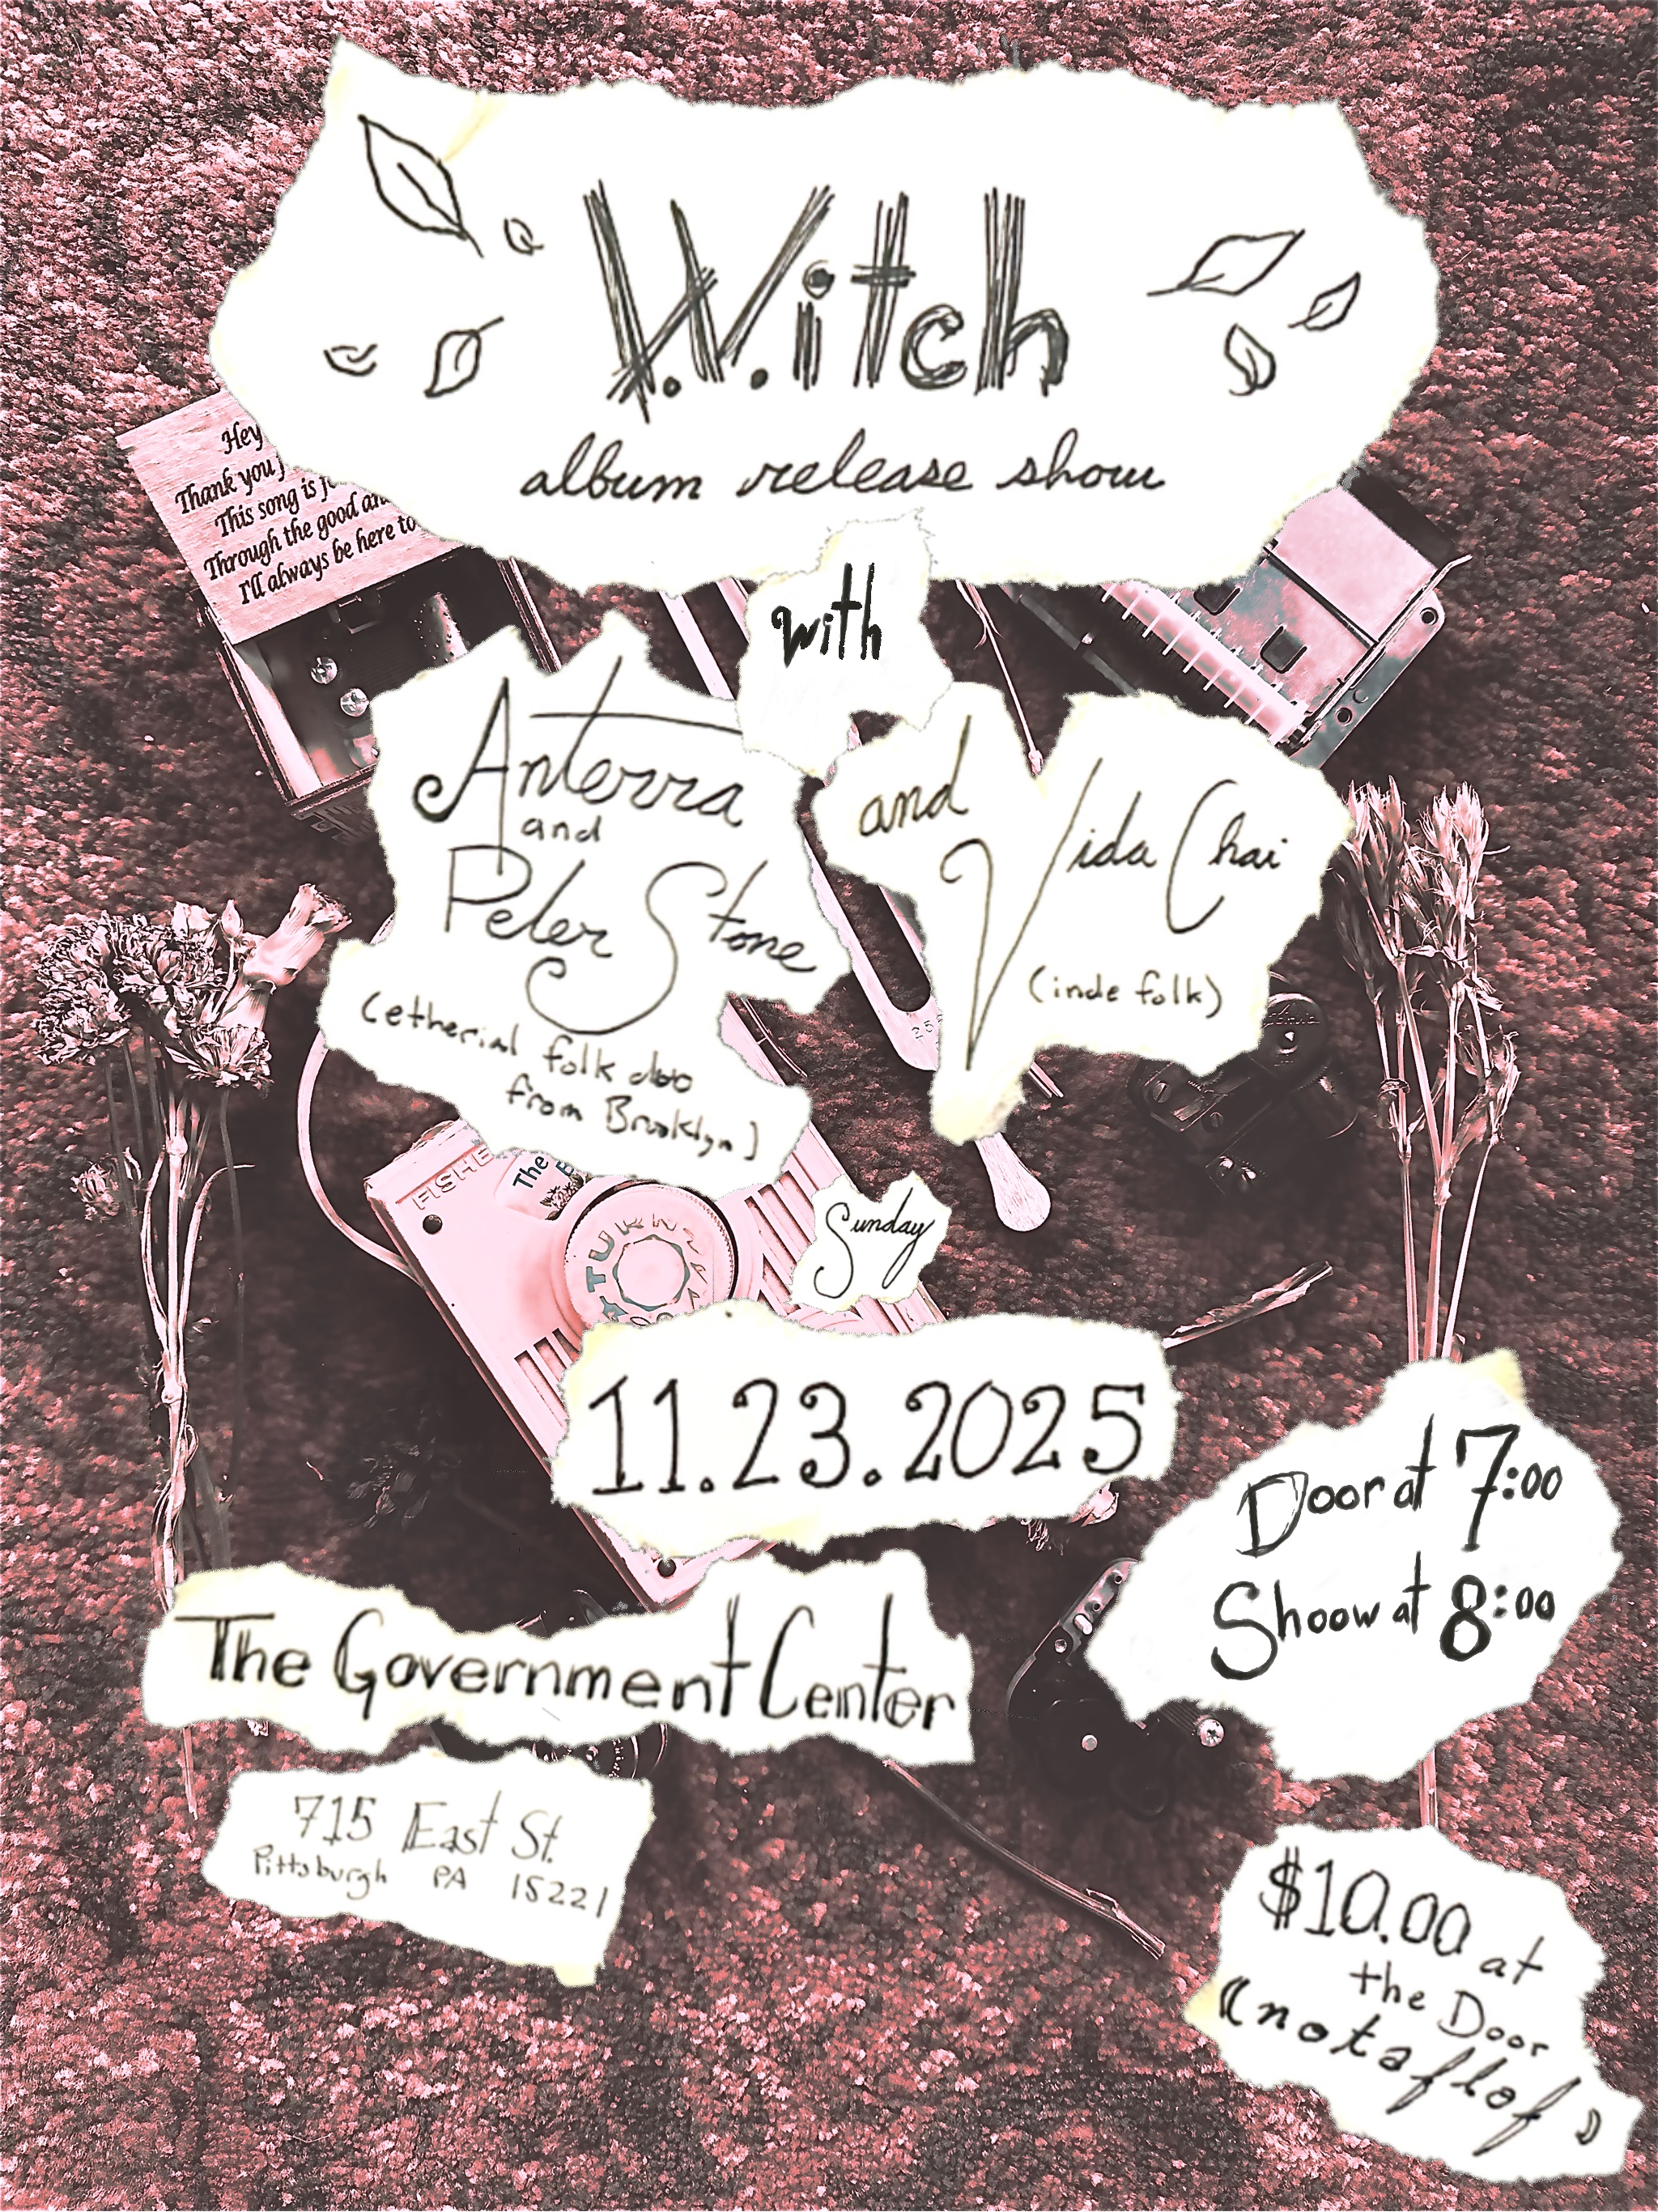 W.itch
album release show
with
Anterra
and
Peter Stone
(etherial folk duo
from Brooklyn)
and
Vida Chai
(inde folk)
Hey
Thank you
This song is
Through the good an
I'll always be here to
FISHE
The
Sunday
11.23.2025
Door at 7:00
Shoow at 8:00
The Government Center
715 East St.
Pittsburgh PA 15221
$10.00 at
the Door
(notaflof)